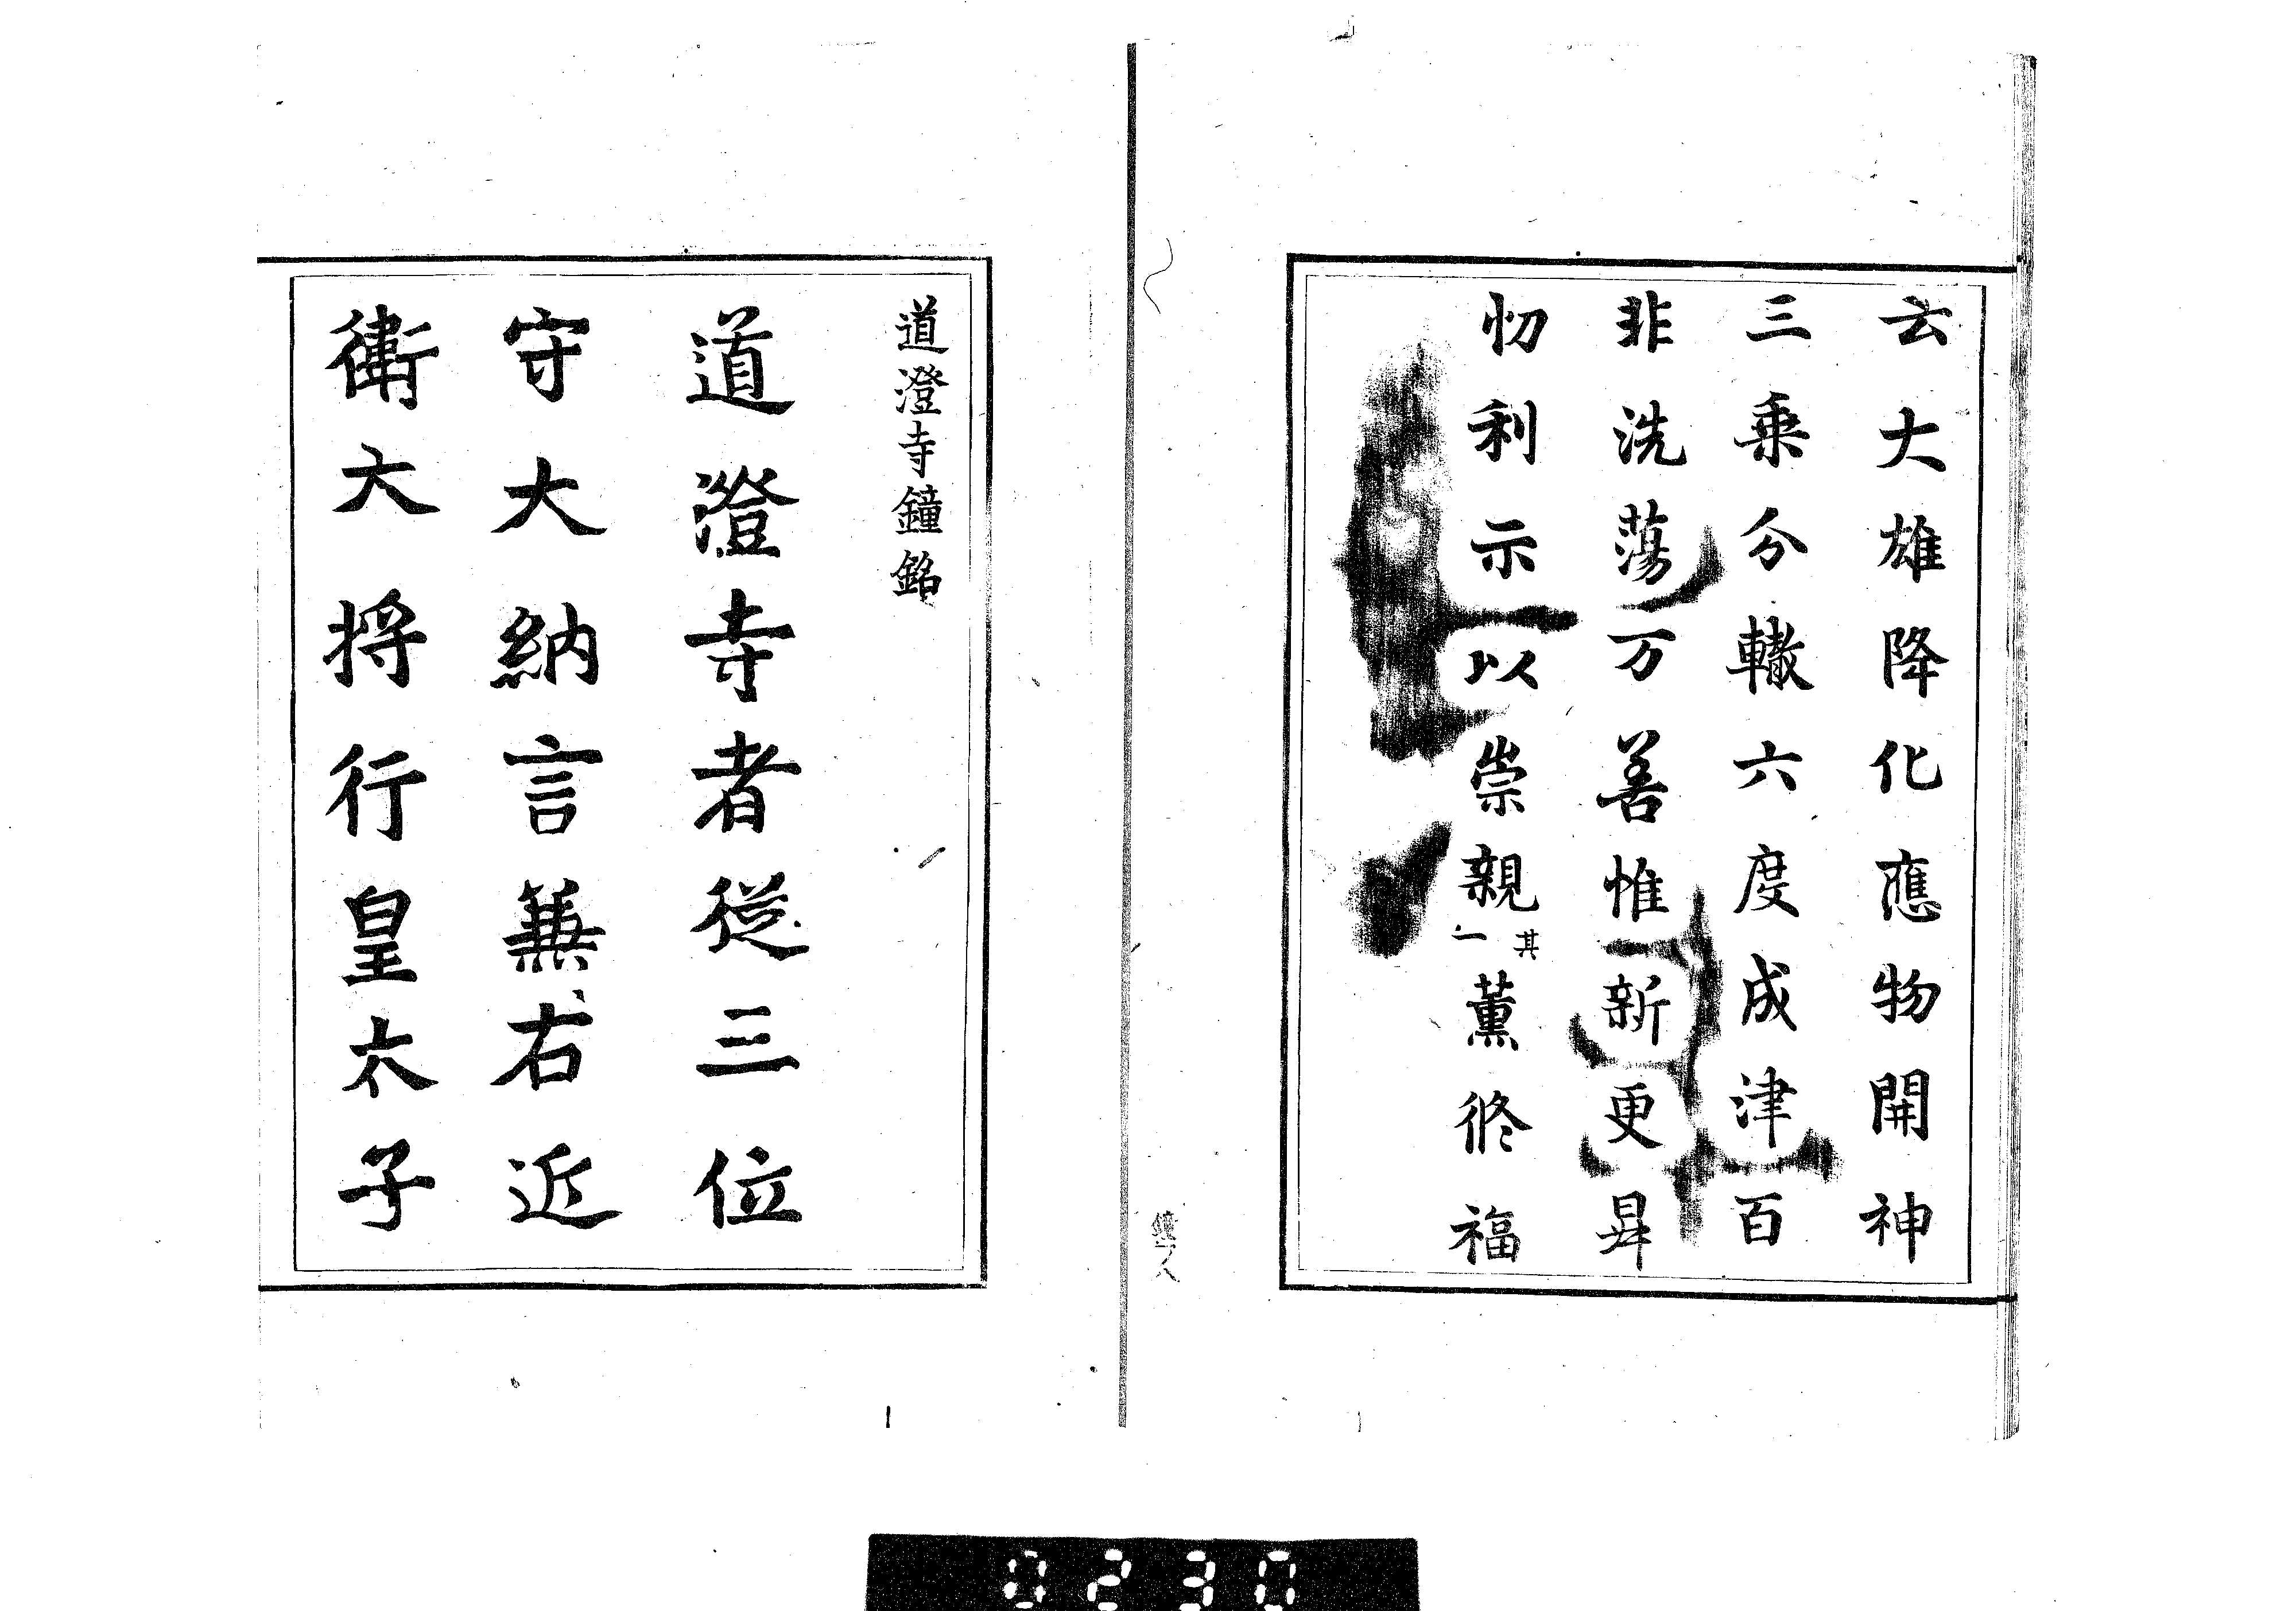 云大雄降化應物開神
三乗分轍六度成津百
非洗蕩万善惟新更昇
忉利示以崇親其一薫修福
道澄寺鐘銘
道澄寺者従三位
守大納言兼右近
衛大将行皇太子
0230